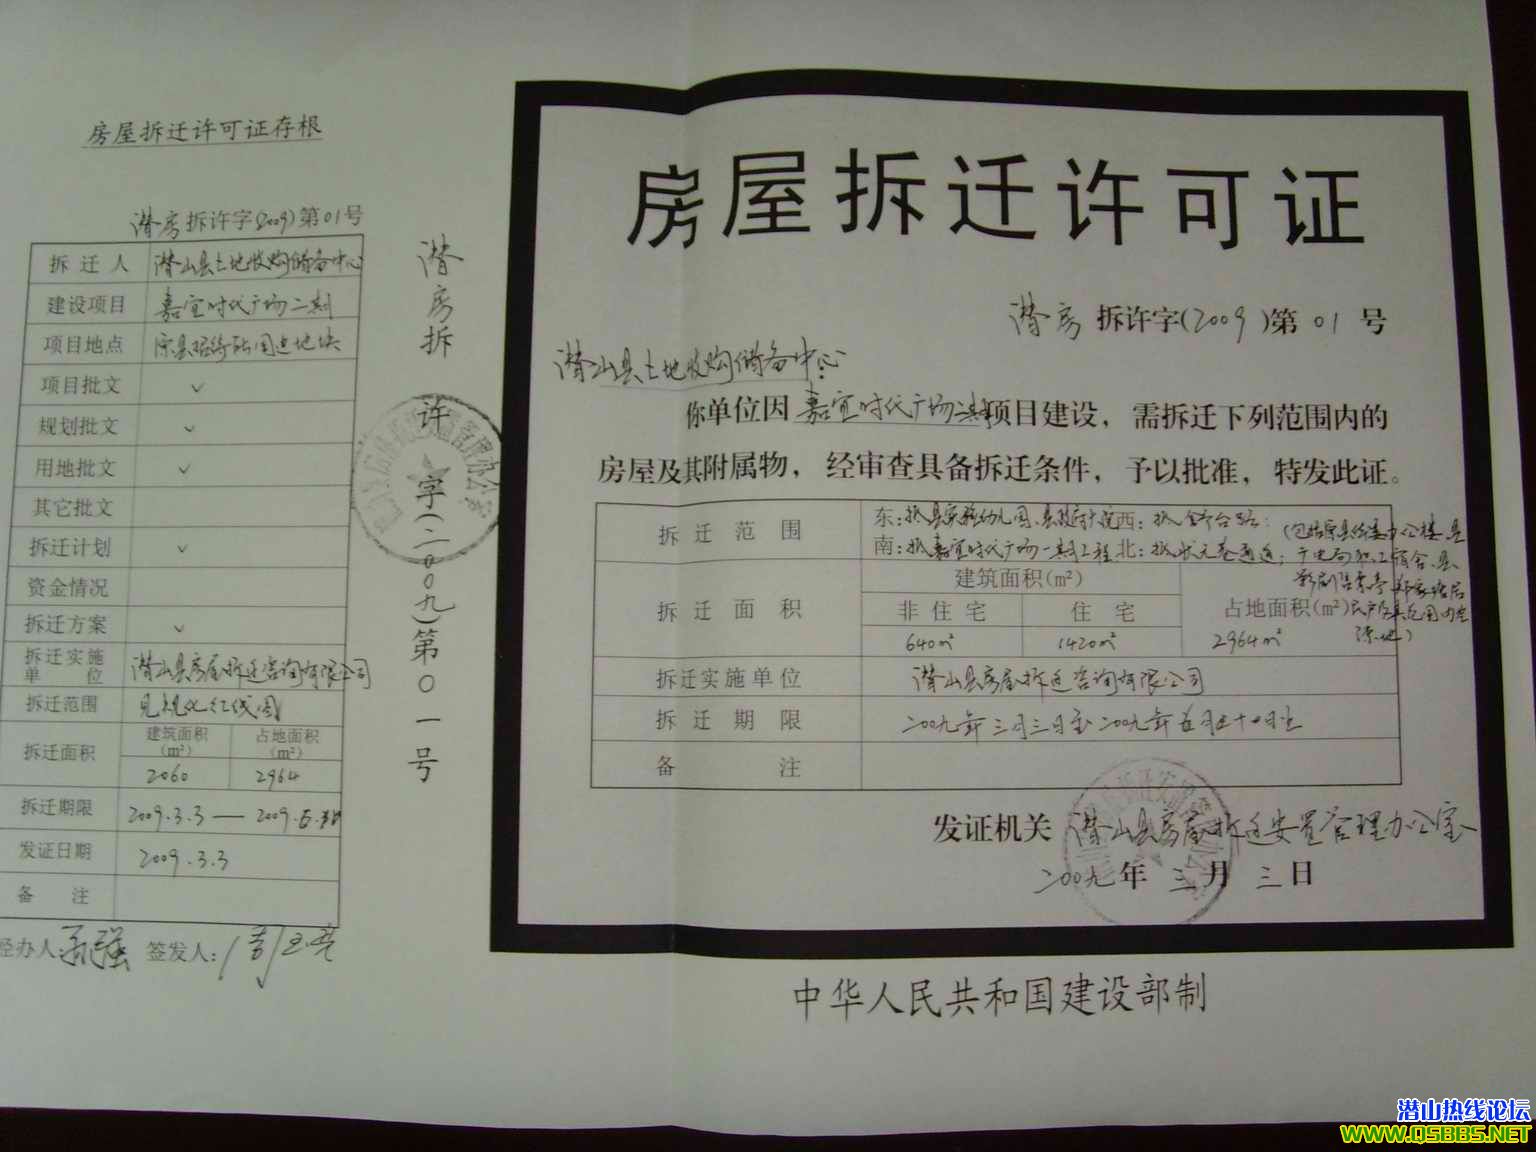 房屋拆迁许可证存根
潜房拆许字(2009)第01号
拆迁人 潜山县土地收购储备中心
建设项目 嘉宜时代广场二期
项目地点
项目批文 ✓
规划批文 ✓
用地批文 ✓
其它批文
拆迁计划 ✓
资金情况
拆迁方案 ✓
拆迁实施单位 潜山县房屋拆迁咨询有限公司
拆迁范围 见规化红线图
拆迁面积 建筑面积(m²) 占地面积(m²)
2060 2964
拆迁期限 2009.3.3—2009.5.
发证日期 2009.3.3
备注
经办人 签发人:
潜房拆许字(二00九)第0一号
房屋拆迁许可证
潜房拆许字(2009)第01号
潜山县土地收购储备中心
你单位因嘉宜时代广场二期项目建设，需拆迁下列范围内的
房屋及其附属物，经审查具备拆迁条件，予以批准，特发此证。
拆迁范围 东:抵县实验幼儿园、县政府大院 西:抵舒台路:
南:抵嘉宜时代广场一期工程 北:抵状元巷通道;
拆迁面积 建筑面积(m²) 占地面积(m²)
非住宅 住宅
640m² 1420m² 2964m²
拆迁实施单位 潜山县房屋拆迁咨询有限公司
拆迁期限 二00九年三月三日至二00九年五月
备注
发证机关 潜山县房屋拆迁安置管理办公室
二00九年三月三日
中华人民共和国建设部制
潜山热线论坛
WWW.QSBBS.NET